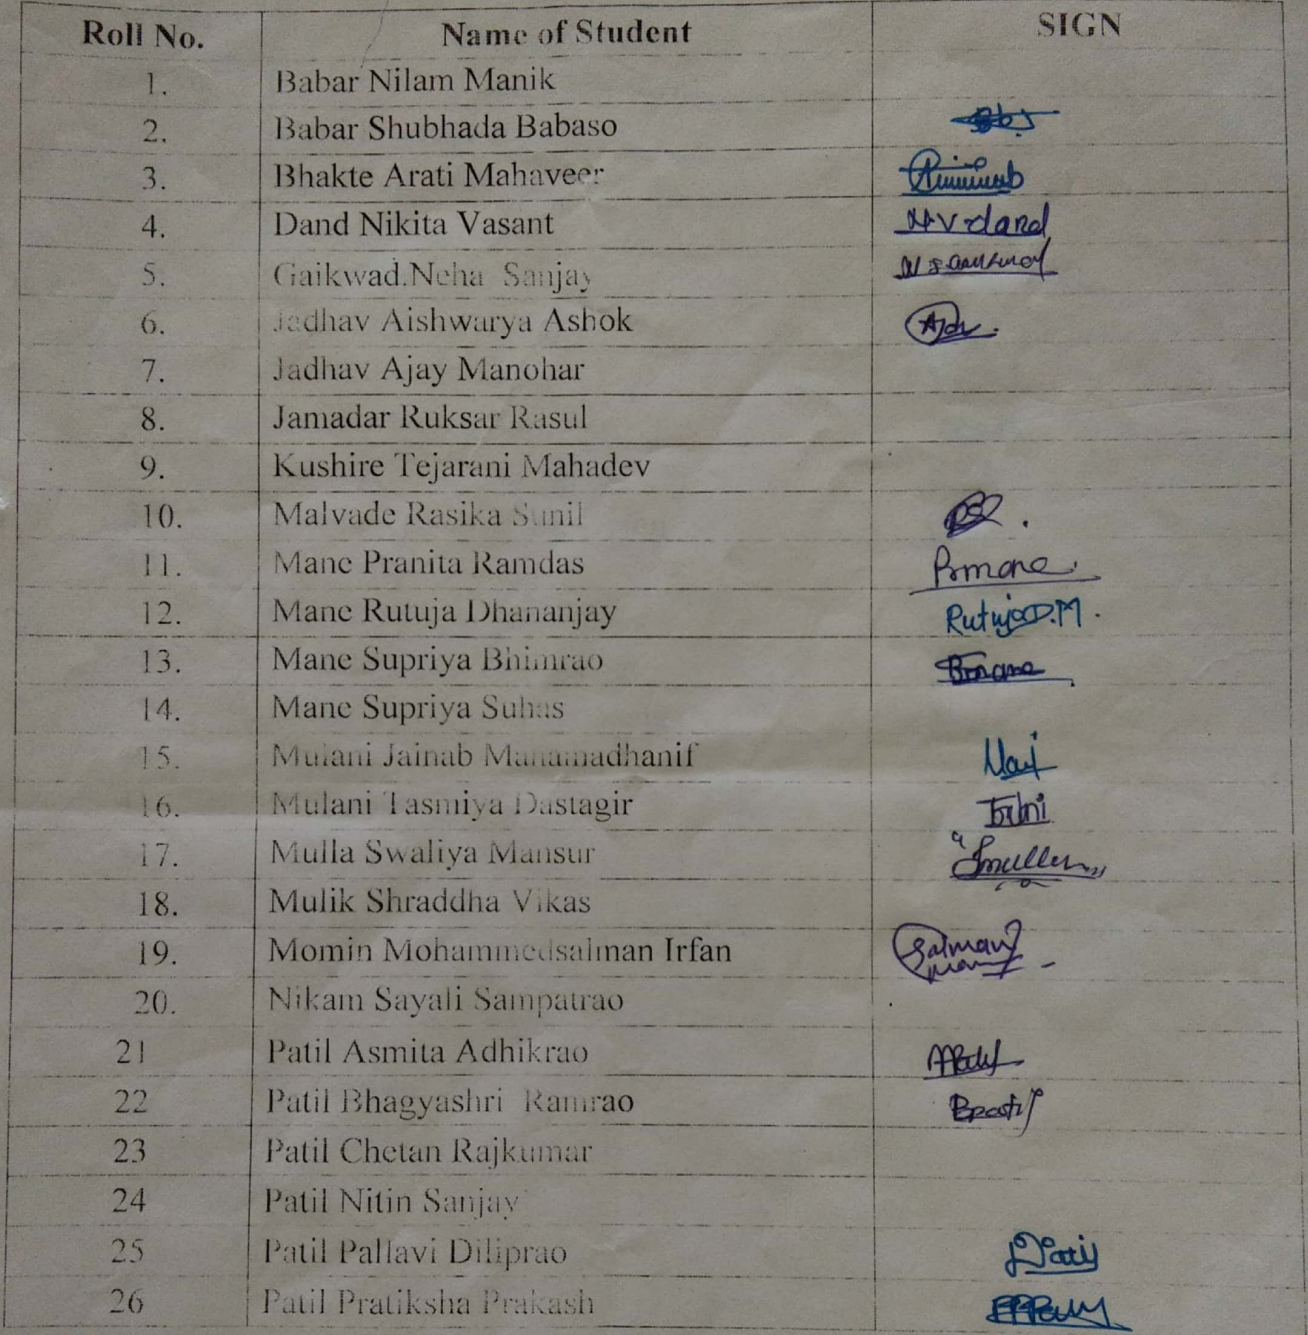 Roll No. Name of Student SIGN
1. Babar Nilam Manik
2. Babar Shubhada Babaso
3. Bhakte Arati Mahaveer
4. Dand Nikita Vasant N V dand
5. Gaikwad.Neha Sanjay
6. Jadhav Aishwarya Ashok
7. Jadhav Ajay Manohar
8. Jamadar Ruksar Rasul
9. Kushire Tejarani Mahadev
10. Malvade Rasika Sunil
11. Mane Pranita Ramdas
12. Mane Rutuja Dhananjay Rutuja D.M.
13. Mane Supriya Bhimrao
14. Mane Supriya Suhas
15. Mulani Jainab Mahamadhanif
16. Mulani Tasmiya Dastagir
17. Mulla Swaliya Mansur
18. Mulik Shraddha Vikas
19. Momin Mohammedsalman Irfan Salman
20. Nikam Sayali Sampatrao
21 Patil Asmita Adhikrao
22 Patil Bhagyashri Ramrao
23 Patil Chetan Rajkumar
24 Patil Nitin Sanjay
25 Patil Pallavi Diliprao
26 Patil Pratiksha Prakash